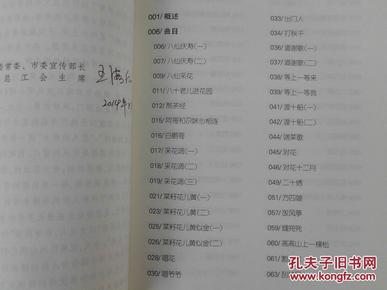 省常委、市委宣传部长
总工会主席
2014年
001/概述
006/曲目
006/八仙庆寿(一)
007/八仙庆寿(二)
009/八仙采花
011/八十老儿进花园
012/熬茶经
015/阿哥和尕妹心相连
016/白鹦哥
017/采花调(一)
018/采花调(二)
019/采花调(三)
021/菜籽花儿黄(一)
023/菜籽花儿黄(二)
025/菜籽花儿黄似金(一)
026/菜籽花儿黄似金(二)
028/唱花
030/唱爷爷
033/出门人
034/打秋千
035/道谢歌(一)
036/道谢歌(二)
038/等上一等来
039/等上一等我
040/渡十船(一)
042/渡十船(二)
044/端茶歌
045/对花
046/对花十二月
049/二十绣
051/方四娘
057/放风筝
059/
060/高高山上一棵松
061/
063/
孔夫子旧书网